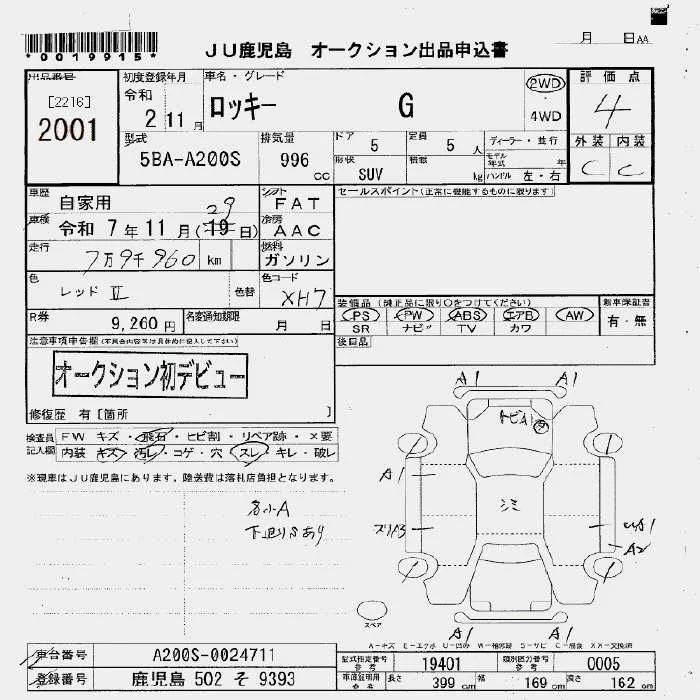 *0019915*
JU鹿児島 オークション出品申込書
月 日AA
出品番号
[2216]
2001
初度登録年月
令和
2 11月
車名・グレード
ロッキー G
2WD
・
4WD
評価点
4
外装 内装
C C
型式
5BA-A200S
排気量
996 cc
ドア 5
定員 5 人
形状 SUV
積載 kg
ディーラー・並行
モデル年式 年
ハンドル 左・右
車歴 自家用
シフト FAT
車検 令和 7年 11月(19日)
29
冷房 AAC
走行 7万9千960 km
燃料 ガソリン
色 レッドⅡ 色替
色コード XH7
R券 9,260 円
名変通知期限 月 日
セールスポイント(正常に機能するものに限ります)
装備品(純正品に限り○をつけてください)
PS PW ABS エアB AW
SR ナビ TV カワ
新車保証書
有・無
後日品
注意事項申告欄(不具合内容等は具体的に記入して下さい)
オークション初デビュー
修復歴 有[箇所 ]
検査員記入欄
FW キズ・飛石・ヒビ割・リペア跡・X要
内装 キズ・汚レ・コゲ・穴・スレ・キレ・破レ
※現車はJU鹿児島にあります。陸送費は落札店負担となります。
各小A
下廻りSあり
A1 A1
トビA1
A1
シミ
ズリA3
A2
A1 A1
スペア
A=キズ E=エクボ U=凹み W=補修跡 S=サビ C=腐食 XX=交換済
車台番号 A200S-0024711
登録番号 鹿児島 502 そ 9393
型式指定番号 参考 19401
類別区分番号 参考 0005
車庫証明用 参考 長さ 399 cm 幅 169 cm 高さ 162 cm